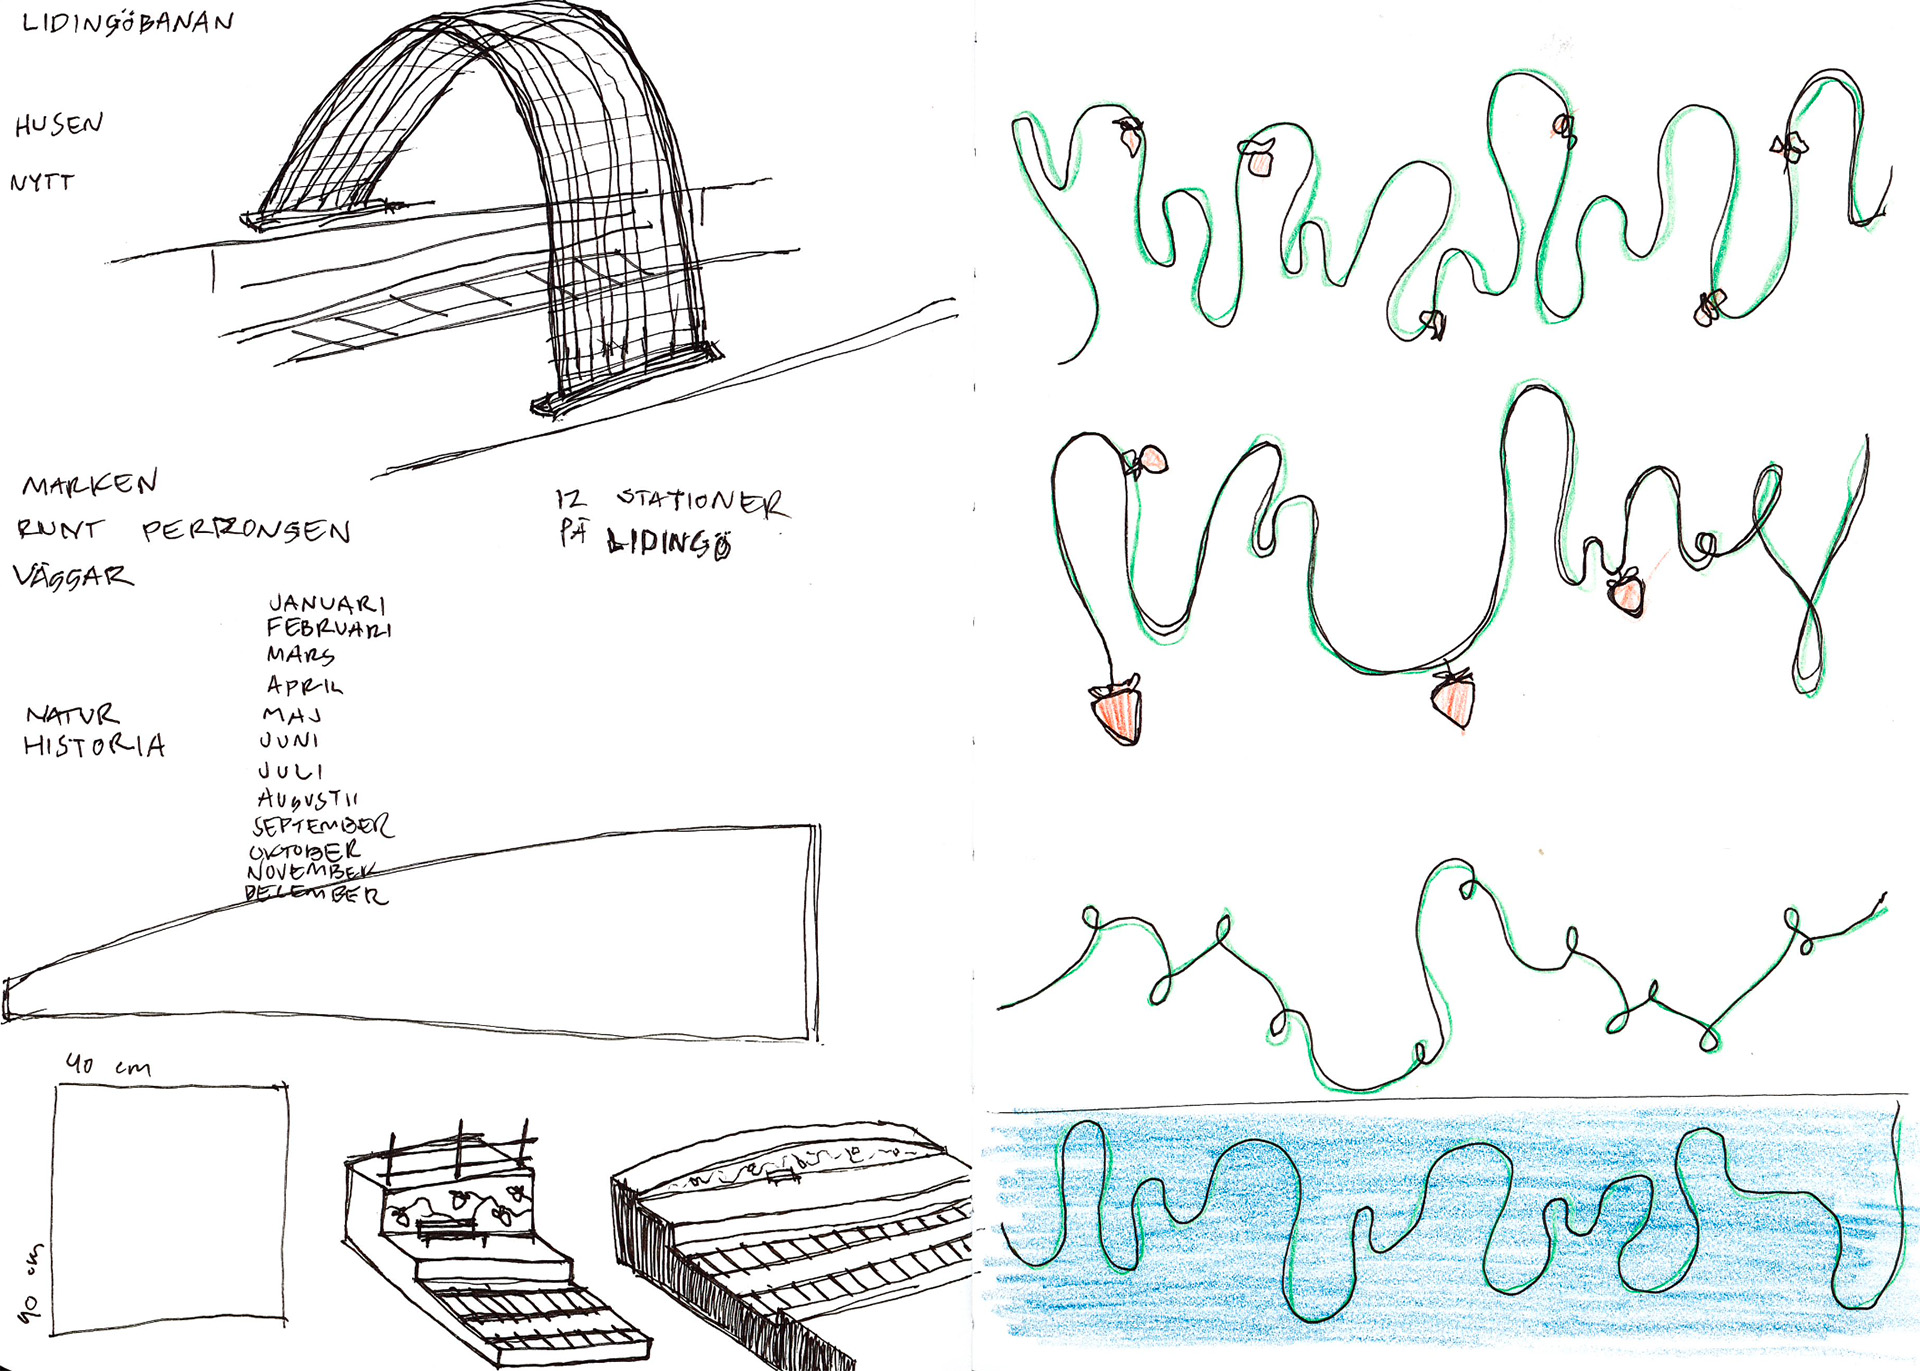 LIDINGÖBANAN
HUSEN
NYTT
MARKEN
RUNT PERRONGEN
VÄGGAR
12 STATIONER
PÅ LIDINGÖ
JANUARI
FEBRUARI
MARS
APRIL
MAJ
JUNI
JULI
AUGUSTI
SEPTEMBER
OKTOBER
NOVEMBER
DECEMBER
NATUR
HISTORIA
40 cm
40 cm